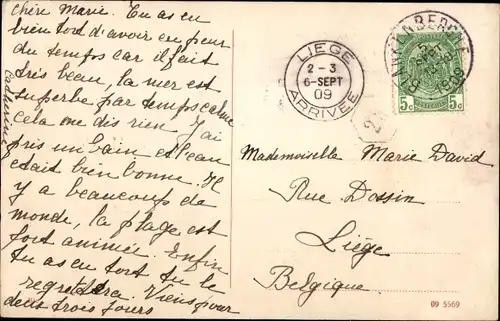 chère Marie. Tu as eu
bien tort d'avoir eu peur
du temps car il fait
très beau, la mer est
superbe par temps calme
cela me dis rien. J'ai
pris un bain et l'eau
était bien bonne. Il
y a beaucoup de
monde, la plage est
fort animée. Enfin
tu as eu tort tu le
regrettera. Viens pour
deux trois jours
LIEGE
2-3
6-SEPT
09
ARRIVEE
BLANKENBERGHE
1909
5c 5c
Mademoiselle Marie David
Rue Dossin
Liège
Belgique
09 5569